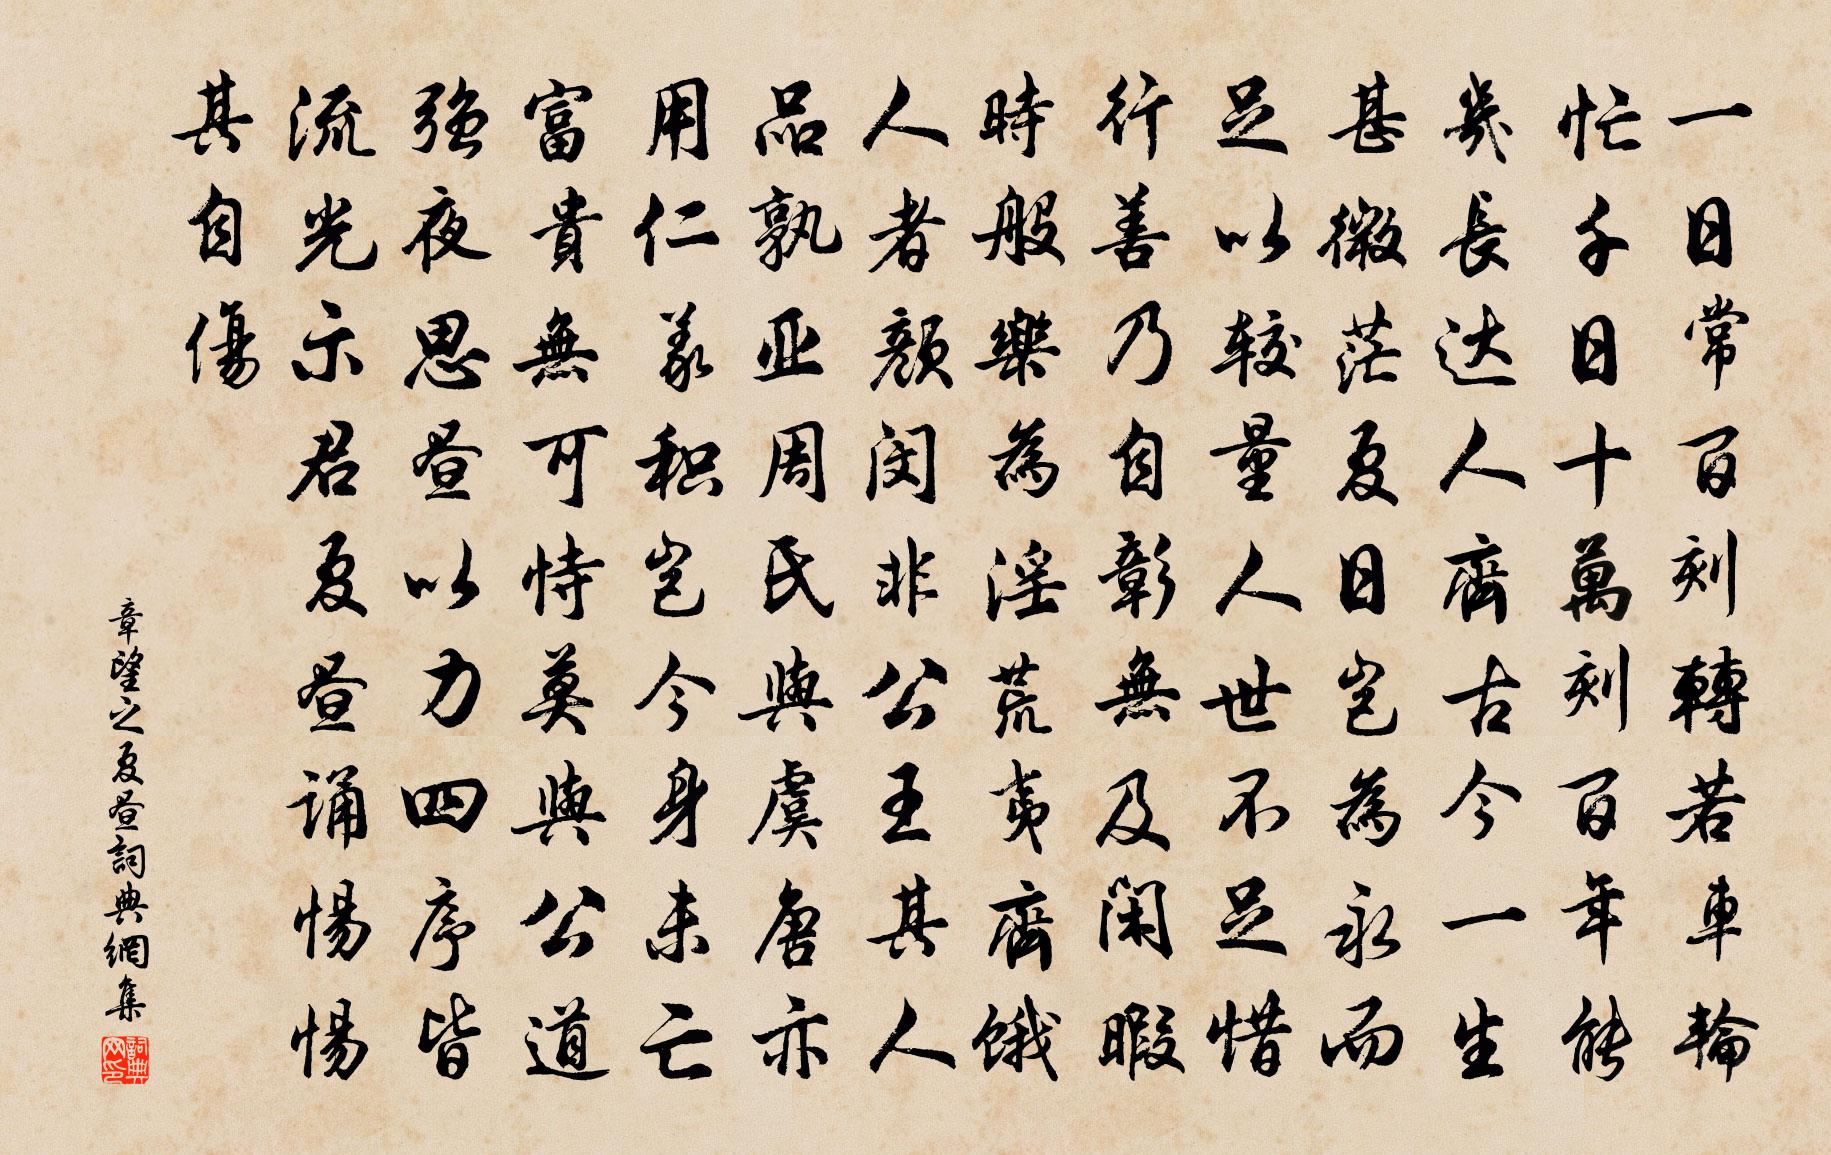 一日常百刻轉若車輪
忙千日十萬刻百年能
幾長达人齊古今一生
甚微茫夏日岂為永而
足以较量人世不足惜
行善乃自彰無及閑暇
時般樂為淫荒夷齊饿
人者颜闵非公王其人
品孰亚周氏與虞唐亦
用仁義积岂今身未亡
富貴無可恃莫與公道
强夜思昼以力四序皆
流光示君夏昼诵惕惕
其自傷
章望之夏昼詞典網集
詞典网印